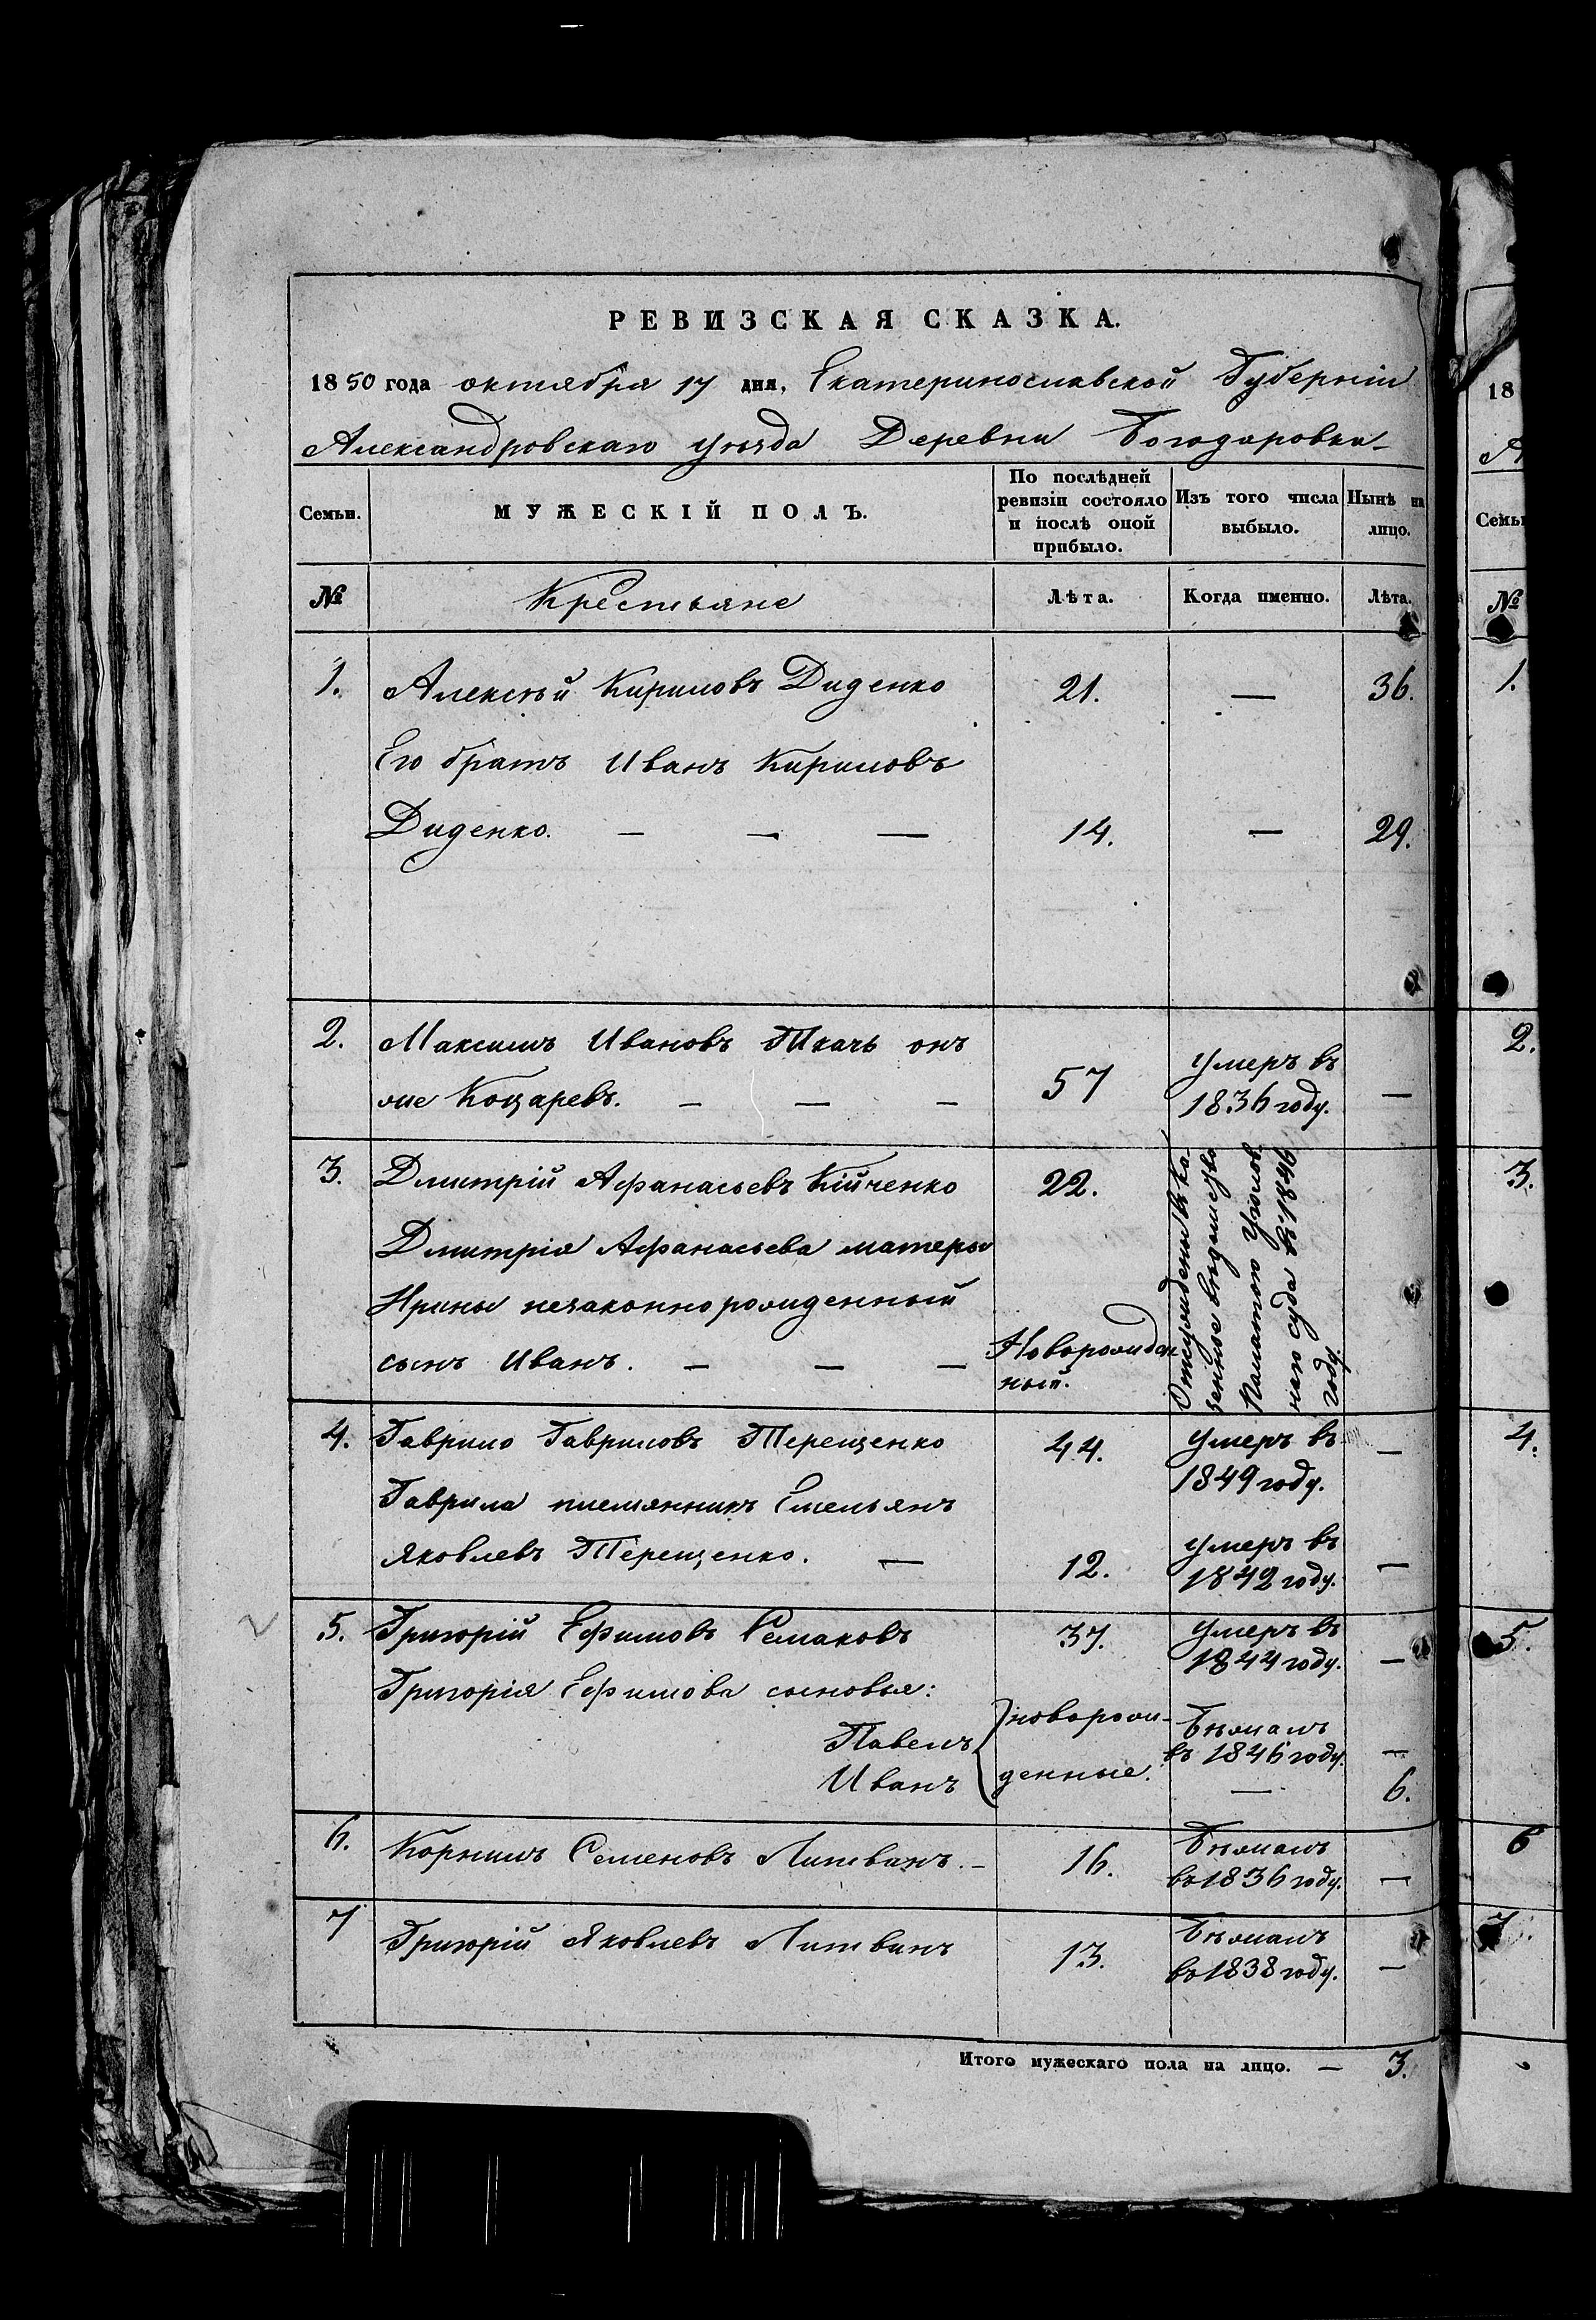 РЕВИЗСКАЯ СКАЗКА.
1850 года октября 17 дня, Екатеринославской Губерніи
Александровскаго уѣзда Деревни Богодаровки
Семьи. МУЖЕСКІЙ ПОЛЪ. По послѣдней ревизіи состояло и послѣ оной прибыло. Изъ того числа выбыло. Нынѣ на лицо.
№ Крестьяне Лѣта. Когда именно. Лѣта.
1. Алексѣй Кириловъ Диденко 21. — 36.
Его братъ Иванъ Кириловъ
Диденко. — — — 14. — 29.
2. Максимъ Ивановъ Ткачь онъ
же Коцаревъ. — — — 57 умеръ въ 1836 году. —
3. Дмитрій Афанасьевъ Кійченко 22.
Дмитрія Афанасьева матеры
Ирины незаконнорожденный
сынъ Иванъ. — — — Новорожден
ный.
Отсужденъ въ ка-
зенное вѣдомство
Палатою Уголов
наго суда въ 1846
году.
4. Гаврило Гавриловъ Терещенко 44. умеръ въ 1849 году. —
Гаврила племянникъ Емельянъ
Яковлевъ Терещенко. — 12. умеръ въ 1842 году. —
5. Григорій Ефимовъ Семаковъ 37. умеръ въ 1844 году. —
Григорія Ефимова сыновья:
Павелъ новорож- Бѣжалъ въ 1846 году. —
Иванъ денные. — 6.
6. Корнилъ Семеновъ Литвинъ. — 16. Бѣжалъ въ 1836 году. —
7 Григорій Яковлевъ Литвинъ 13. Бѣжалъ въ 1838 году. —
Итого мужескаго пола на лицо. — 3.
18
А
Семьи
№
1.
2.
3.
4.
5.
6
7.